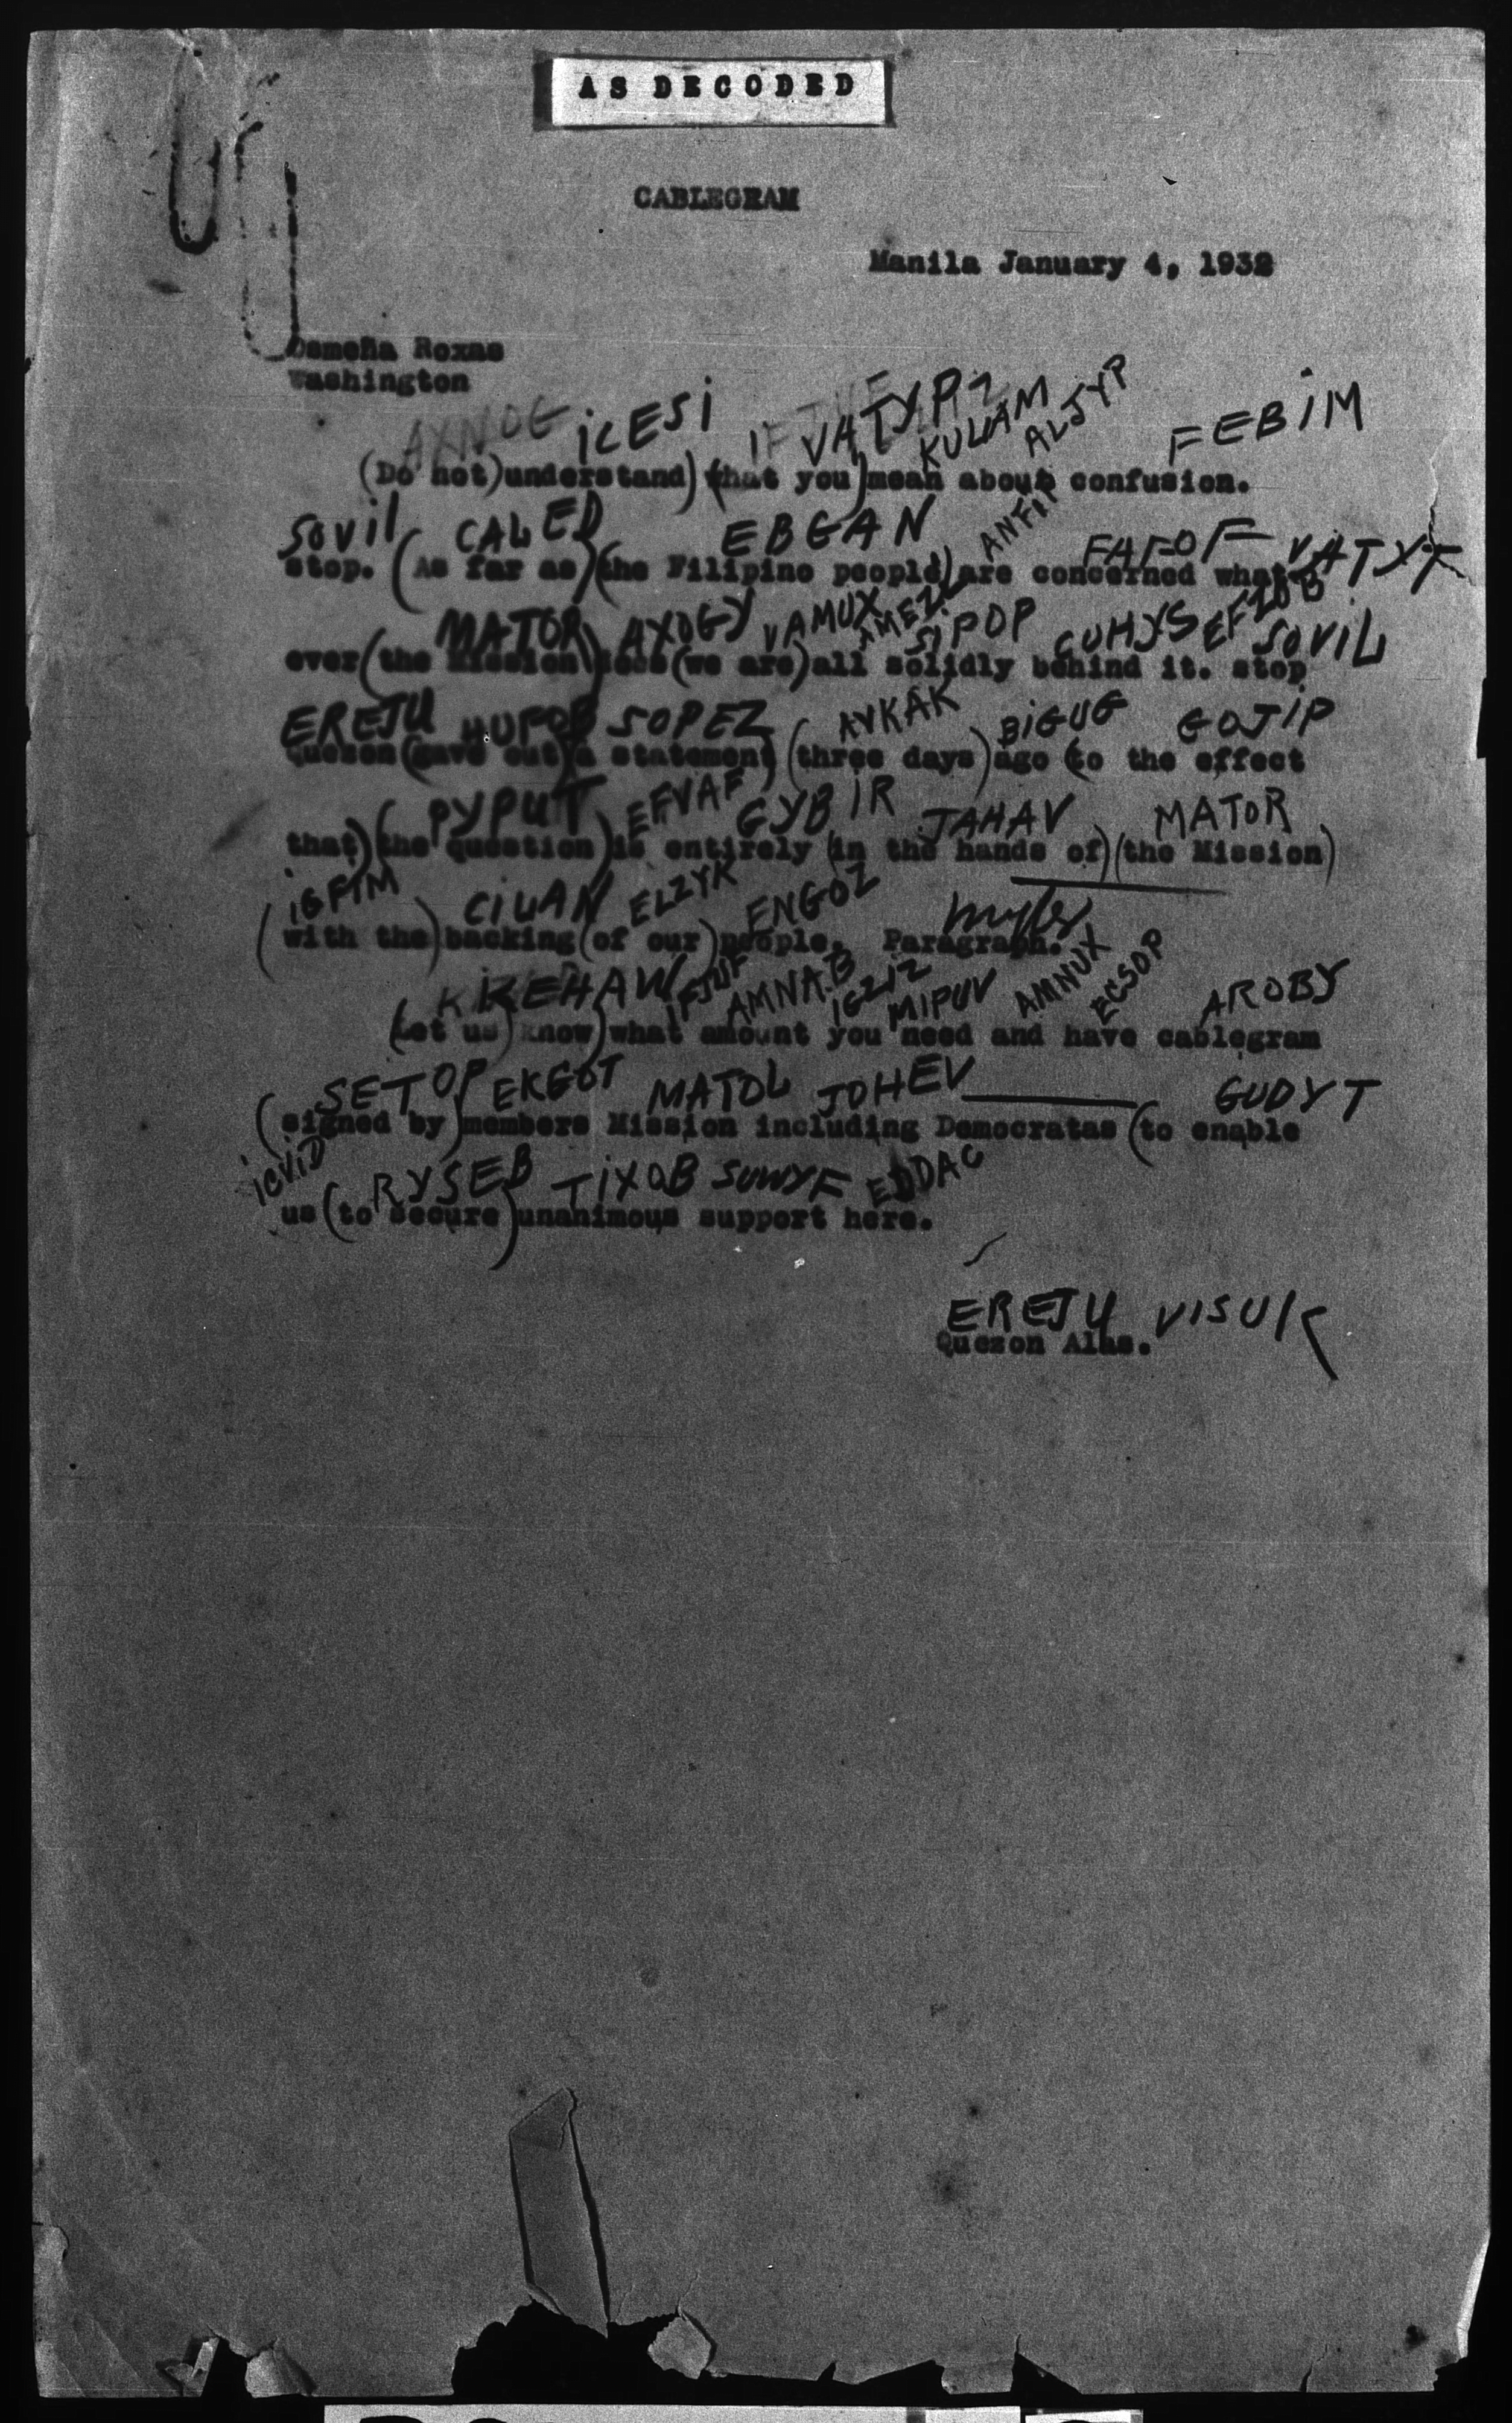 AS DECODED
CABLEGRAM
Manila January 4, 1932
Osmeña Roxas
Washington
AXNOG ICESI VATYP KULAM ALJYP FEBIM
(Do not) understand) (what you) mean about confusion.
SOVIL CALED EBGAN FAFOF VATYX
stop. (As far as) (the Filipino people) are concerned what
MATOR AXOGY VAMUX SIPOP CUHYS EFZOB SOVIL
ever (the Mission) does (we are) all solidly behind it. stop
EREJU SOPEZ AVKAK BIGUG GOJIP
Quezon (gave out) (a statement) (three days) ago (to the effect
PYPUT EFVAF GYBIR JAHAV MATOR
that) (the question) is entirely (in the hands of) (the Mission)
CILAN ELZYK ENGOZ
(with the) backing (of our) people. Paragraph.
KEHAW IFJUF AMNAB IGZIZ MIPUV AMNUX ECSOP AROBY
(Let us) know) what amount you need and have cablegram
SETOP EKGOT MATOL JOHEV GUDYT
(signed by) members Mission including Democratas (to enable
ICVID RYSEB TIXOB SUWYF EDDAC
us (to secure) unanimous support here.
EREJU VISUK
Quezon Alas.